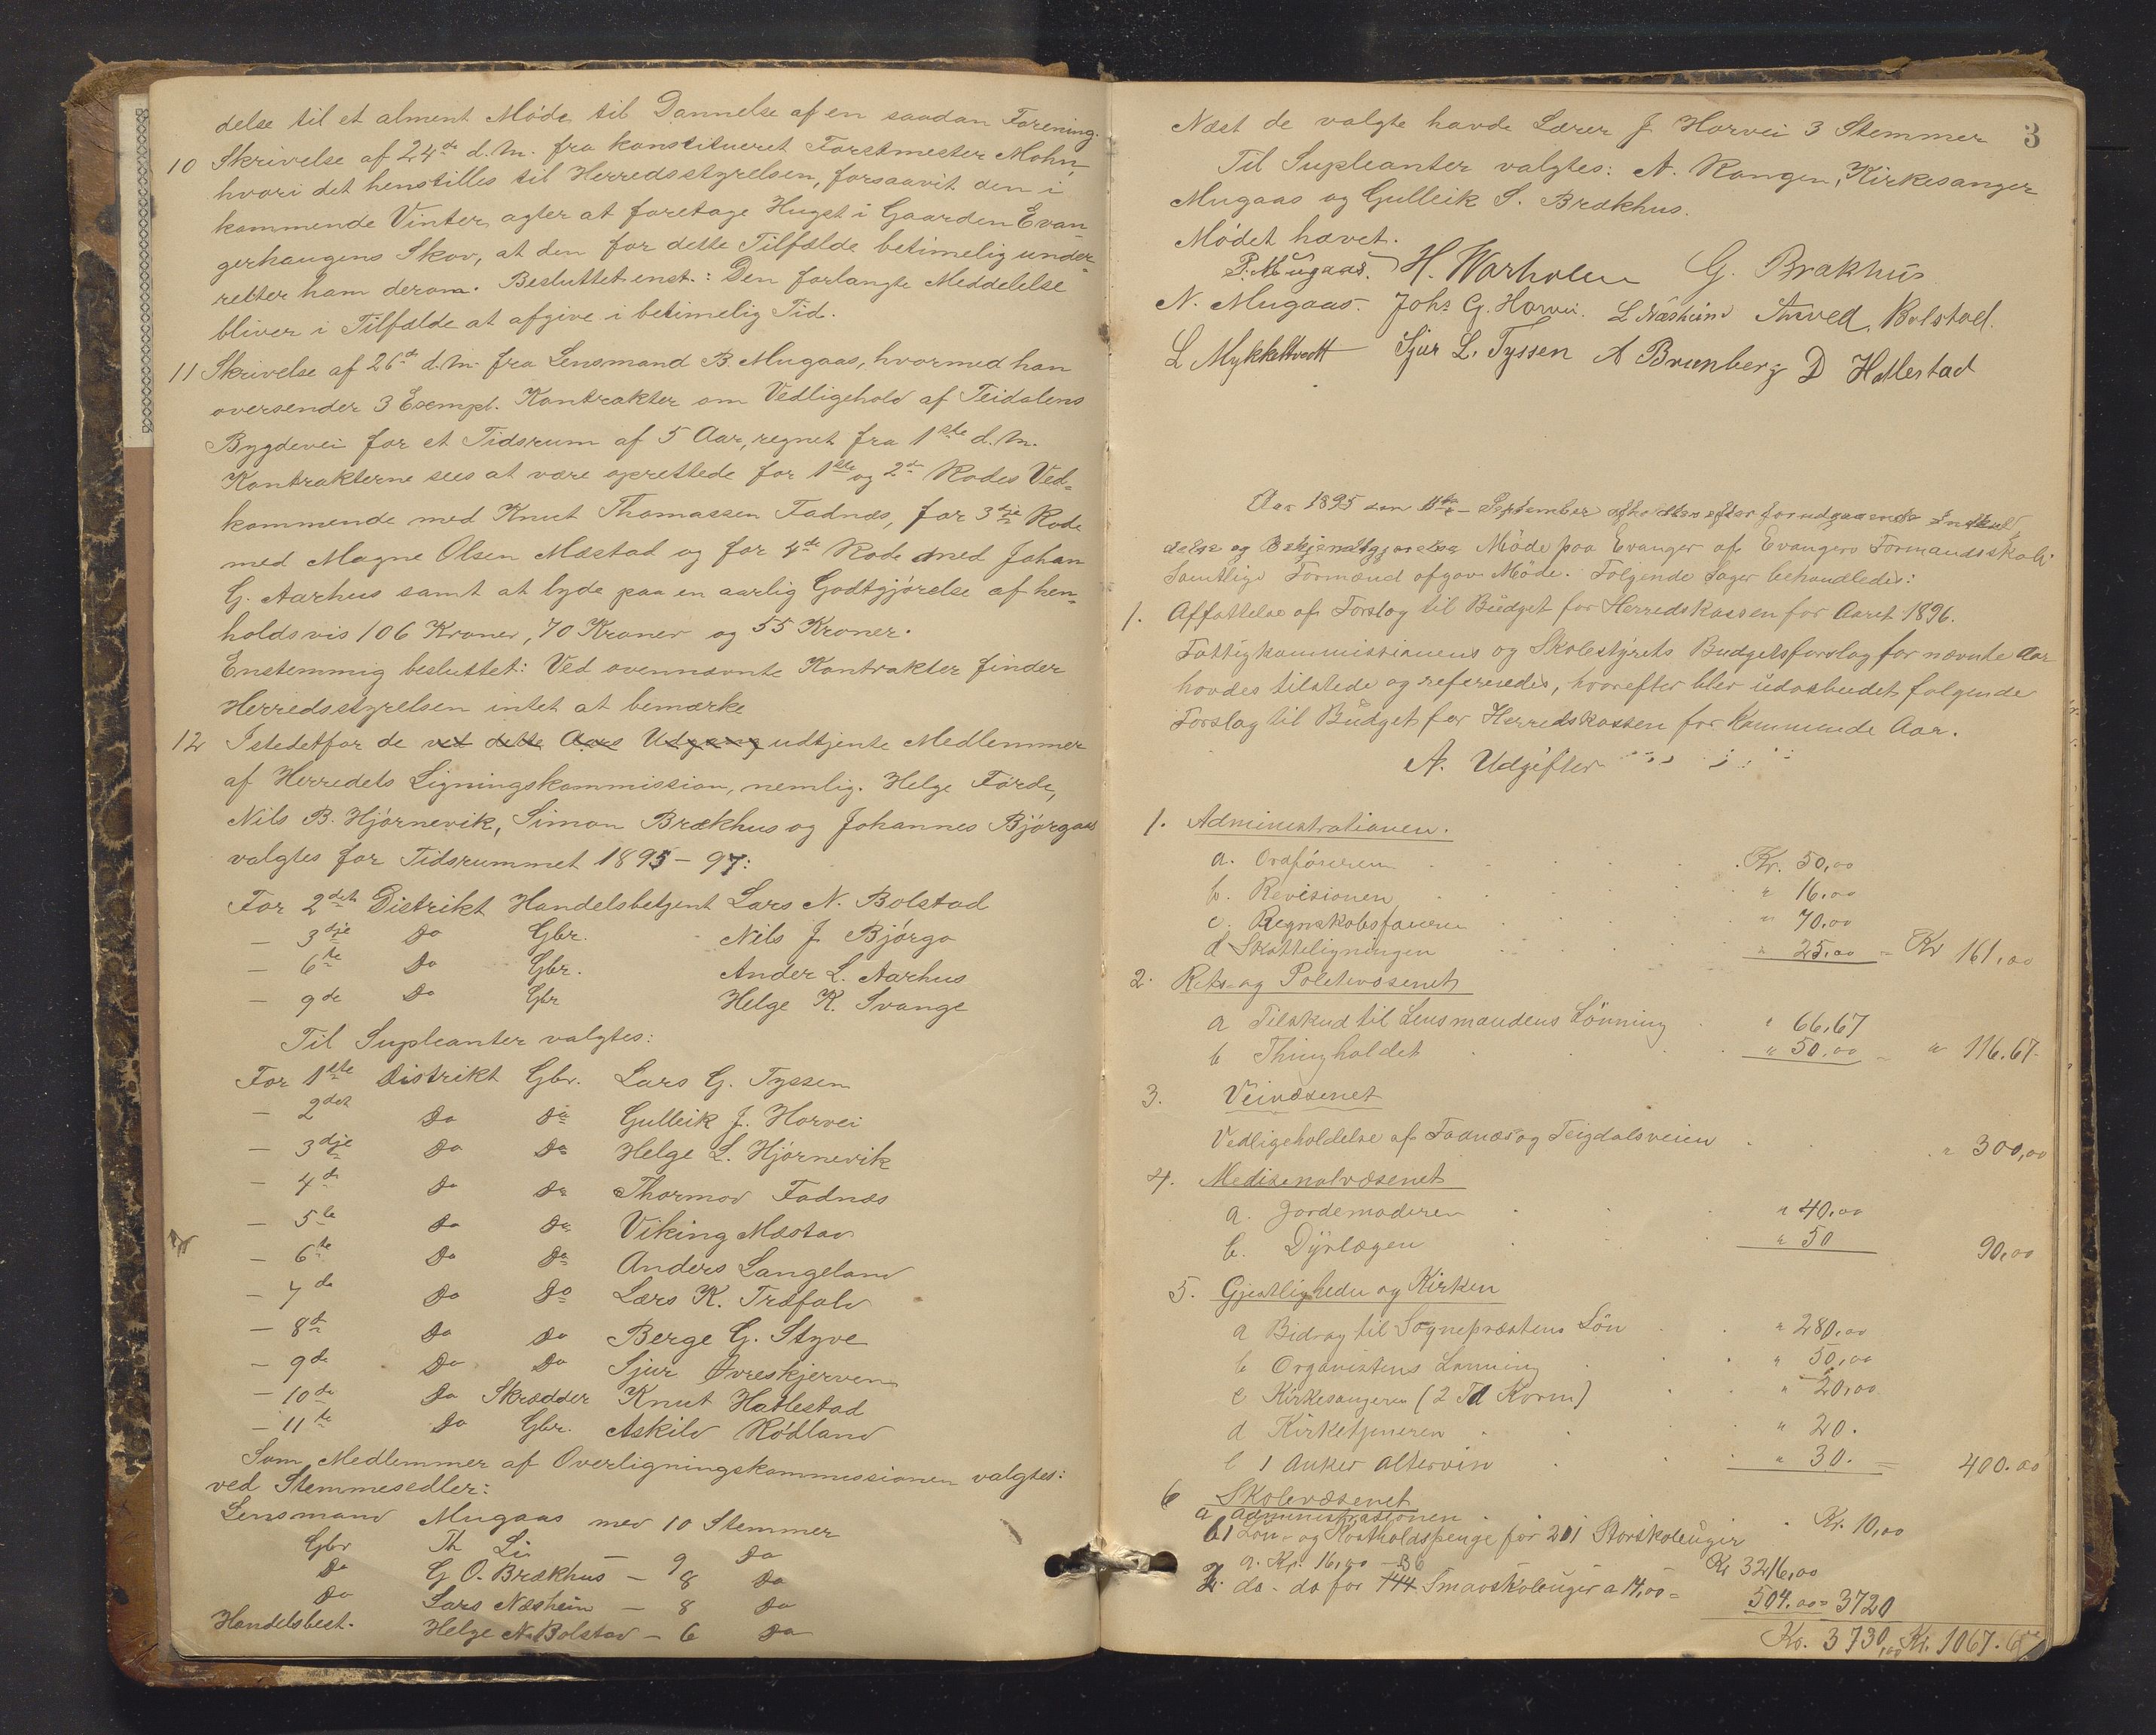 delse til et alment Møde til Dannelse af en saadan Forening.
10 Skrivelse af 24de d. M. fra konstitueret Forstmester Mohn,
hvori det henstilles til Herredsstyrelsen, forsaavit den i
kommende Vinter agter at foretage Hugst i Gaarden Evan-
gerhaugens Skov, at den for dette Tilfælde betimelig under-
retter ham derom. Besluttet enst.: Den forlangte Meddelelse
bliver i Tilfælde at afgive i betimelig Tid.
11 Skrivelse af 26de d. M. fra Lensmand B. Mugaas, hvormed han
oversender 3 Exempl. Kontrakter om Vedligehold af Teidalens
Bygdevei for et Tidsrum af 5 Aar, regnet fra 1ste d. M.
Kontrakterne sees at være oprettede for 1ste og 2de Rodes Ved-
kommende med Knut Thomassen Fadnæs, for 3dje Rode
med Magne Olsen Mæstad og for 4de Rode med Johan
G. Aarhus samt at lyde paa en aarlig Godtgjørelse af hen-
holdsvis 106 Kroner, 70 Kroner og 55 Kroner.
Enstemmig besluttet: Ved ovennævnte Kontrakter finder
Herredsstyrelsen intet at bemærke
12 Istedetfor de ved dette Aars Udgang udtjente Medlemmer
af Herredets Ligningskommission, nemlig. Helge Førde,
Nils B. Hjørnevik, Simon Brækhus og Johannes Bjørgaas
valgtes for Tidsrummet 1895 - 97:
For 2det Distrikt Handelsbetjent Lars N. Bolstad
- 3dje Do Gbr. Nils J. Bjørgo
- 6te Do Gbr. Ander L. Aarhus
- 9de Do Gbr Helge K. Svange
Til Supleanter valgtes:
For 1ste Distrikt Gbr. Lars G. Tyssen
- 2det Do Do Gulleik J. Horvei
- 3dje Do Do Helge L. Hjørnevik
- 4de Do Do Thormod Fadnæs
- 5te Do Do Viking Mæstad
- 6te Do Do Anders Langeland
- 7de Do Do Lars K. Træfald
- 8de Do Do Berge G. Styve
- 9de Do Do Sjur Øvreskjerven
- 10de Do Skrædder Knut Hatlestad
- 11te Do Gbr. Askild Rødland
Som Medlemmer af Overligningskommissionen valgtes:
ved Stemmesedler:
Lensmand Mugaas med 10 Stemmer
Gbr Th Li - 9 Do
Do G O. Brækhus - 8 Do
Do Lars Næsheim - 8 Do
Handelsbest. Helge N. Bolstad - 6 Do
3
Næst de valgte havde Lærer J. Horvei 3 Stemmer
Til Supleanter valgtes: A. Rongen, Kirkesanger
Mugaas og Gulleik S. Brækhus.
Mødet hævet.
P. Mugaas. H. Warholm G. Brakhus
N. Mugaas. Johs G. Horvei. L Næsheim Amved Bolstad.
L Mykkeltvedt Sjur L. Tyssen A Brunberg D Hatlestad
Aar 1895 den 11te September afholdtes efter forudgaaende Indbud-
delse og Bekjendtgjørelse Møde paa Evanger af Evangers Formandsskab.
Samtlige Formænd afgav Møde. Følgende Sager behandledes:
1. Affattelse af Forslag til Budget for Herredskassen for Aaret 1896.
Fattigkommissionens og Skolestyrets Budgetsforslag for nævnte Aar
havdes tilstede og refereredes, hvorefter blev udarbeidet følgende
Forslag til Budget for Herredskassen for kommende Aar.
A. Udgifter
1. Administrationen.
a. Ordføreren Kr. 50,00
b. Revisionen " 16,00
c. Regnskabsføreren " 70,00
d Skatteligningen " 25,00 = Kr 161,00
2. Rets- og Politivæsenet
a Tilskud til Lensmandens Lönning " 66,67
b Thingholdet " 50,00 - " 116.67
3. Veivæsenet
Vedligeholdelse af Fadnæs og Teigdalsveien " 300,00
4. Medisenalvæsenet
a. Jordemoderen " 40,00
b. Dyrlægen " 50 90,00
5. Gjestligheden og Kirken
a Bidrag til Sogneprestens Lön " 280,00
b Organistens Lønning " 50,00
c Kirkesangeren (2 Td Korn) " 20,00
d Kirketjeneren " 20.
e 1 Anker Altervin " 30. = 400.00
6 Skolevæsenet
a Administrationen Kr. 10,00
b 1 Lön- og Kostholdspenge for 201 Storskoleuger
a. Kr. 16,00 Kr 3216,00
2. do - do for 144 36 Smaaskoleuger a 14,00 = 504.00 = 3720
Kr. 3730,00 Kr. 1067.67